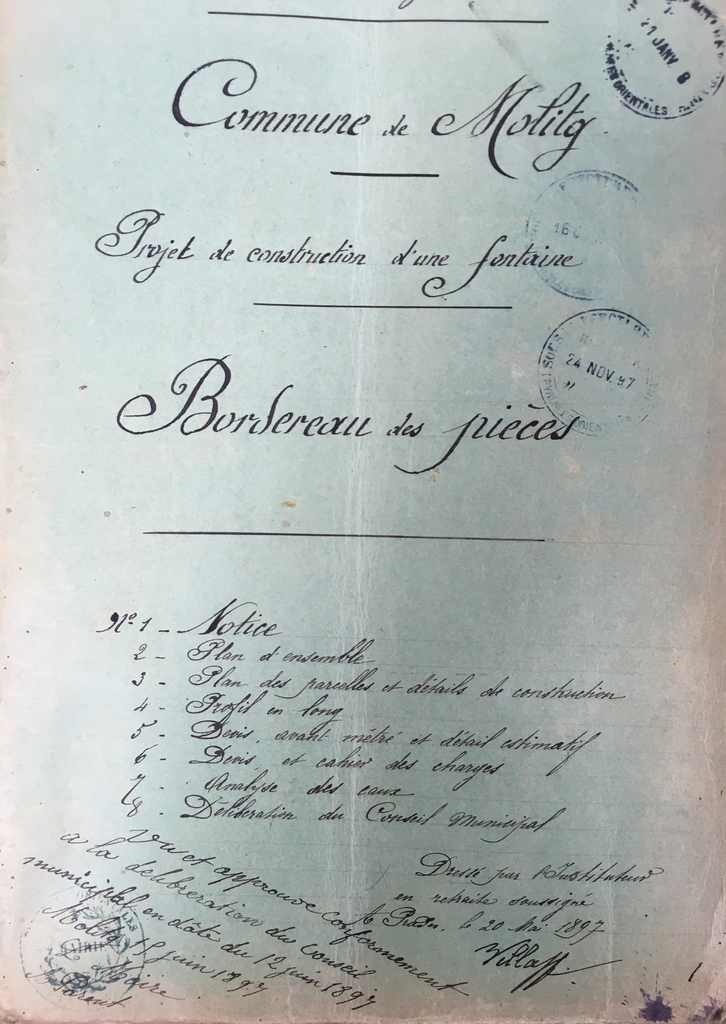 Commune de Molitg
Projet de construction d'une fontaine
Bordereau des pièces
N° 1 - Notice
2 - Plan d'ensemble
3 - Plan des parcelles et détails de construction
4 - Profil en long
5 - Devis, avant métré et détail estimatif
6 - Devis et cahier des charges
7 - Analyse des eaux
8 - Délibération du Conseil Municipal
Vu et approuvé conformément
à la délibération du Conseil
municipal en date du 12 juin 1897
Molitg 15 juin 1897
Le Maire
Dressé par l'Instituteur
en retraite soussigné
à Prades, le 20 Mai 1897
21 JANV 8
ORIENTALES
16
24 NOV. 97
MAIRIE
1